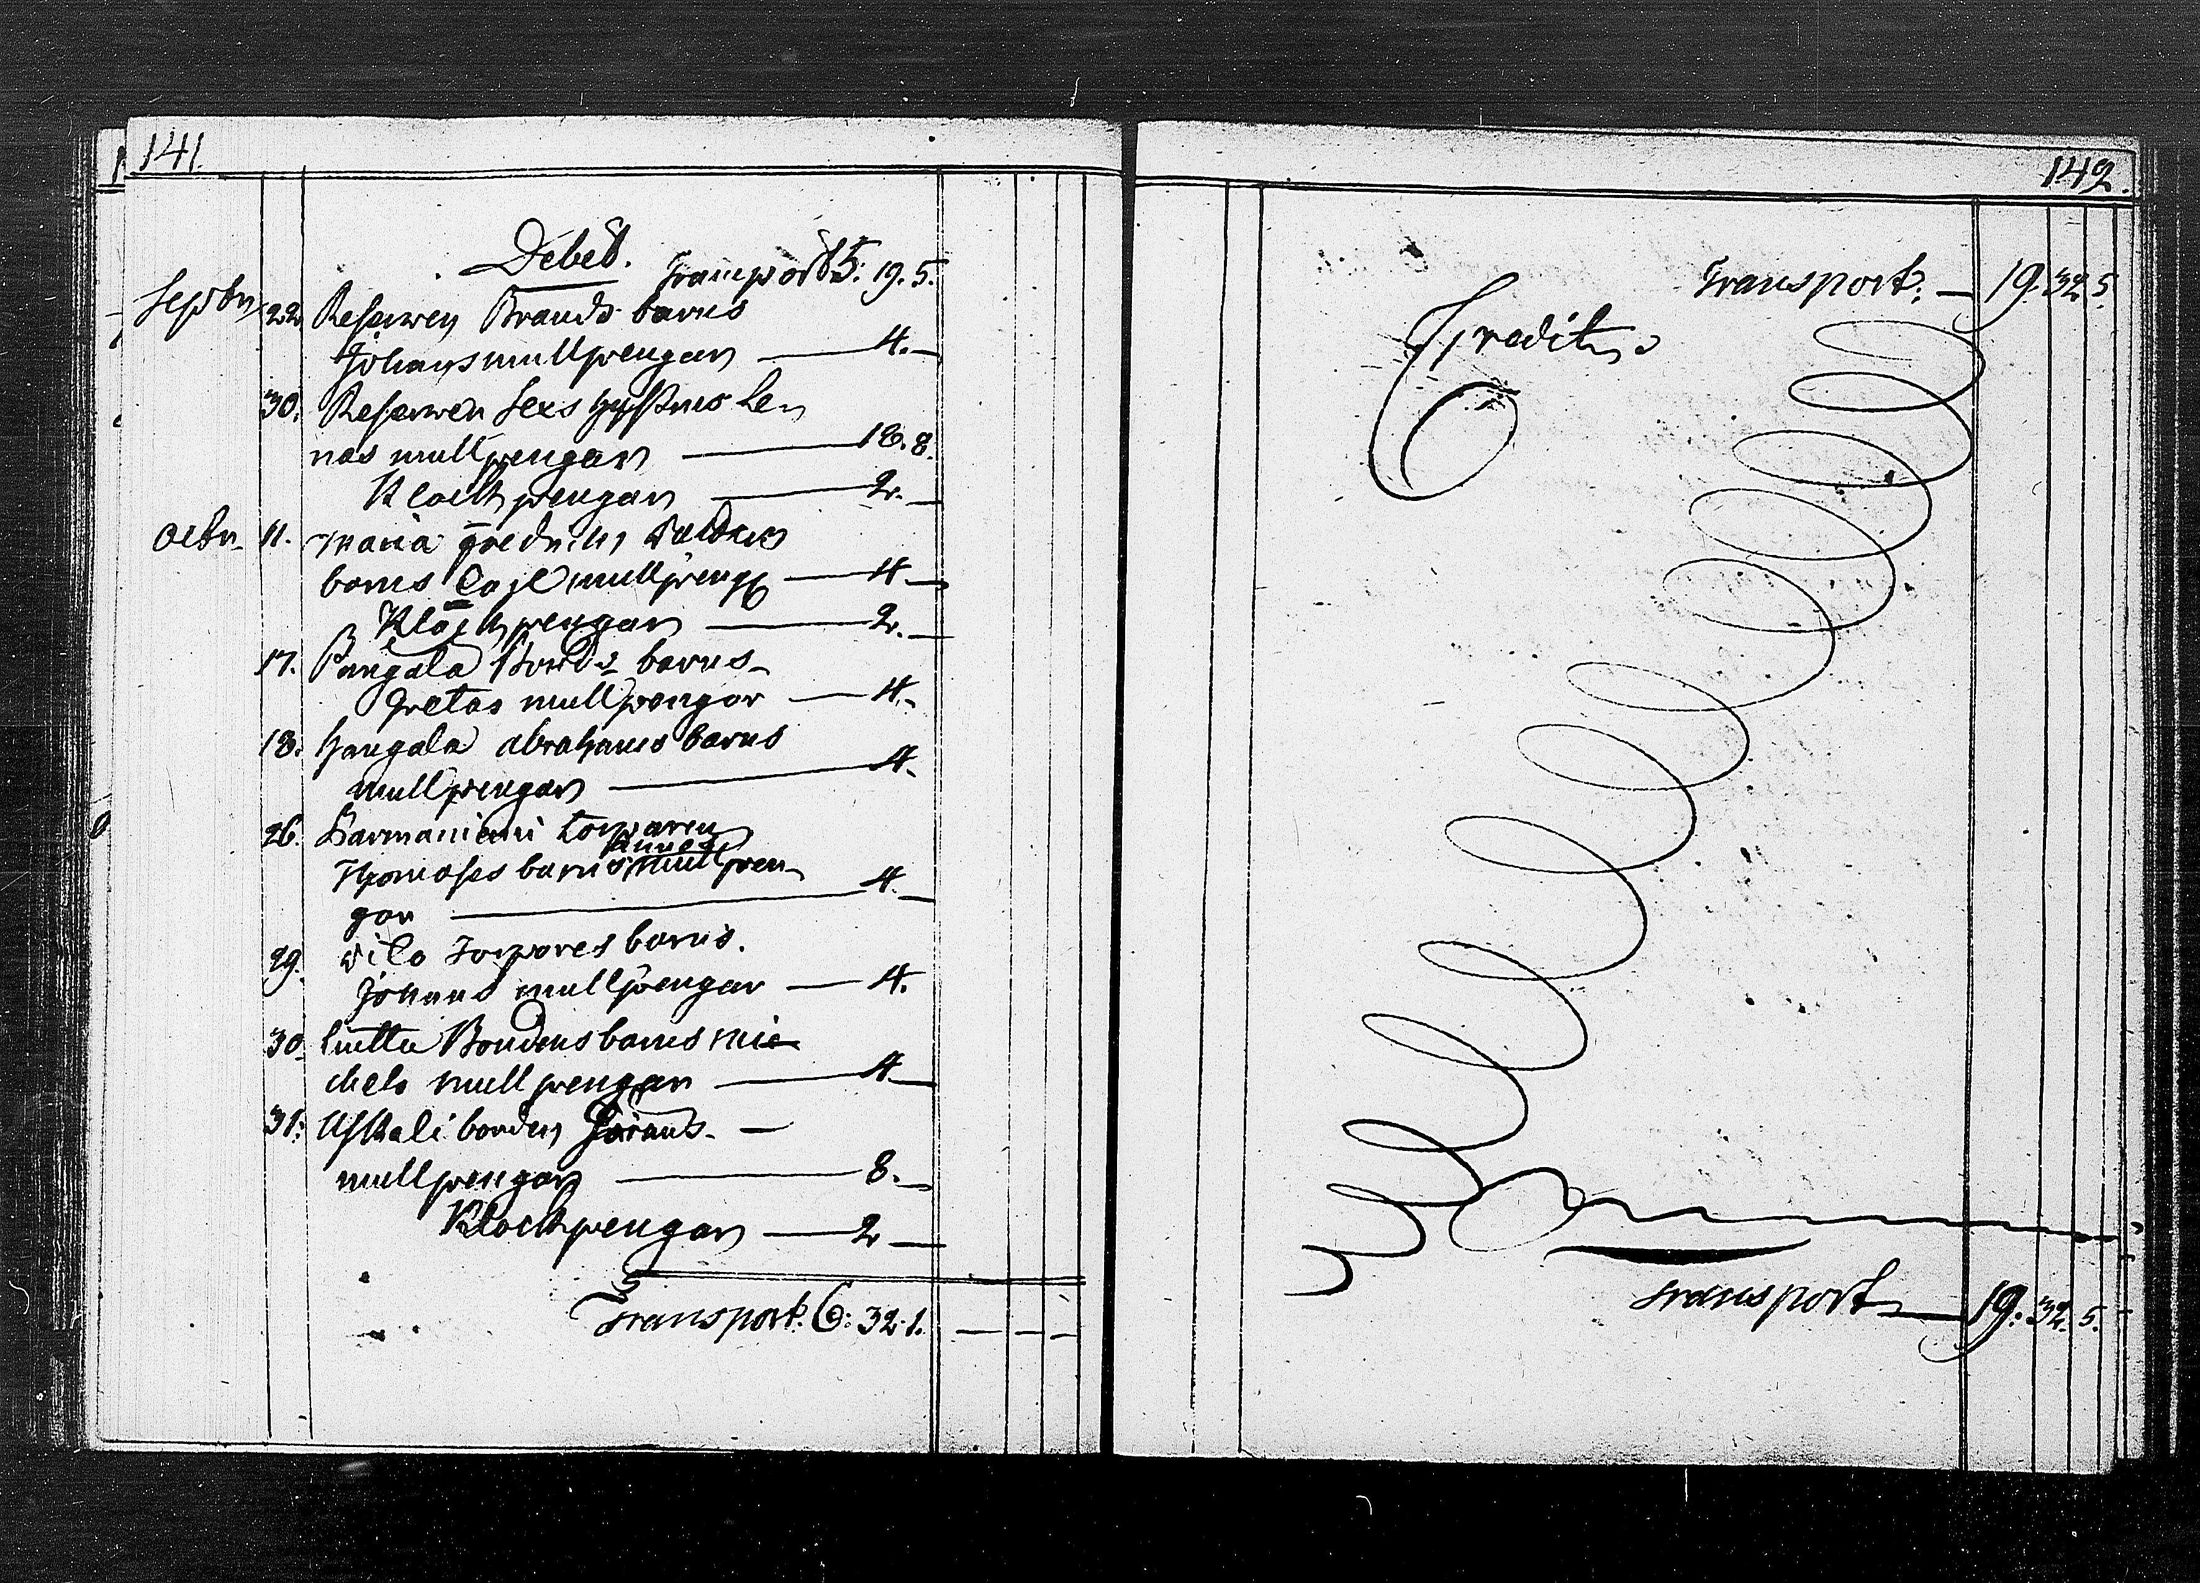 141.
Debet.
Transport 5: 19. 5.
Septbr 22. Reserwen Brands barns
Johans mullpengar — 4. —
30. Reserwen
nas mullpengar — 18. 8.
Klockpengar — 2. —
Octbr. 11. Maria
barns mullpeng — 4 —
Klockpengar — 2. —
17. Pangala barns
Gretas mullpengar — 4. —
18. Hangala Abrahams barns
mullpengar — 4. —
26. Harmaniemi torparen
Annas
Thomases barns mullpen
gar — 4. —
29. dito Torpares barns.
Johans mullpengar — 4.
30. Bondens barns Mic
hels mullpengar — 4 —
31. Uskali bonden Görans. —
mullpengar — 8. —
Klockpengar — 2 —
Transport. 6: 32. 1. — — —
142.
Transport. — 19. 32. 5.
Credit.
Transport — 19. 32. 5.